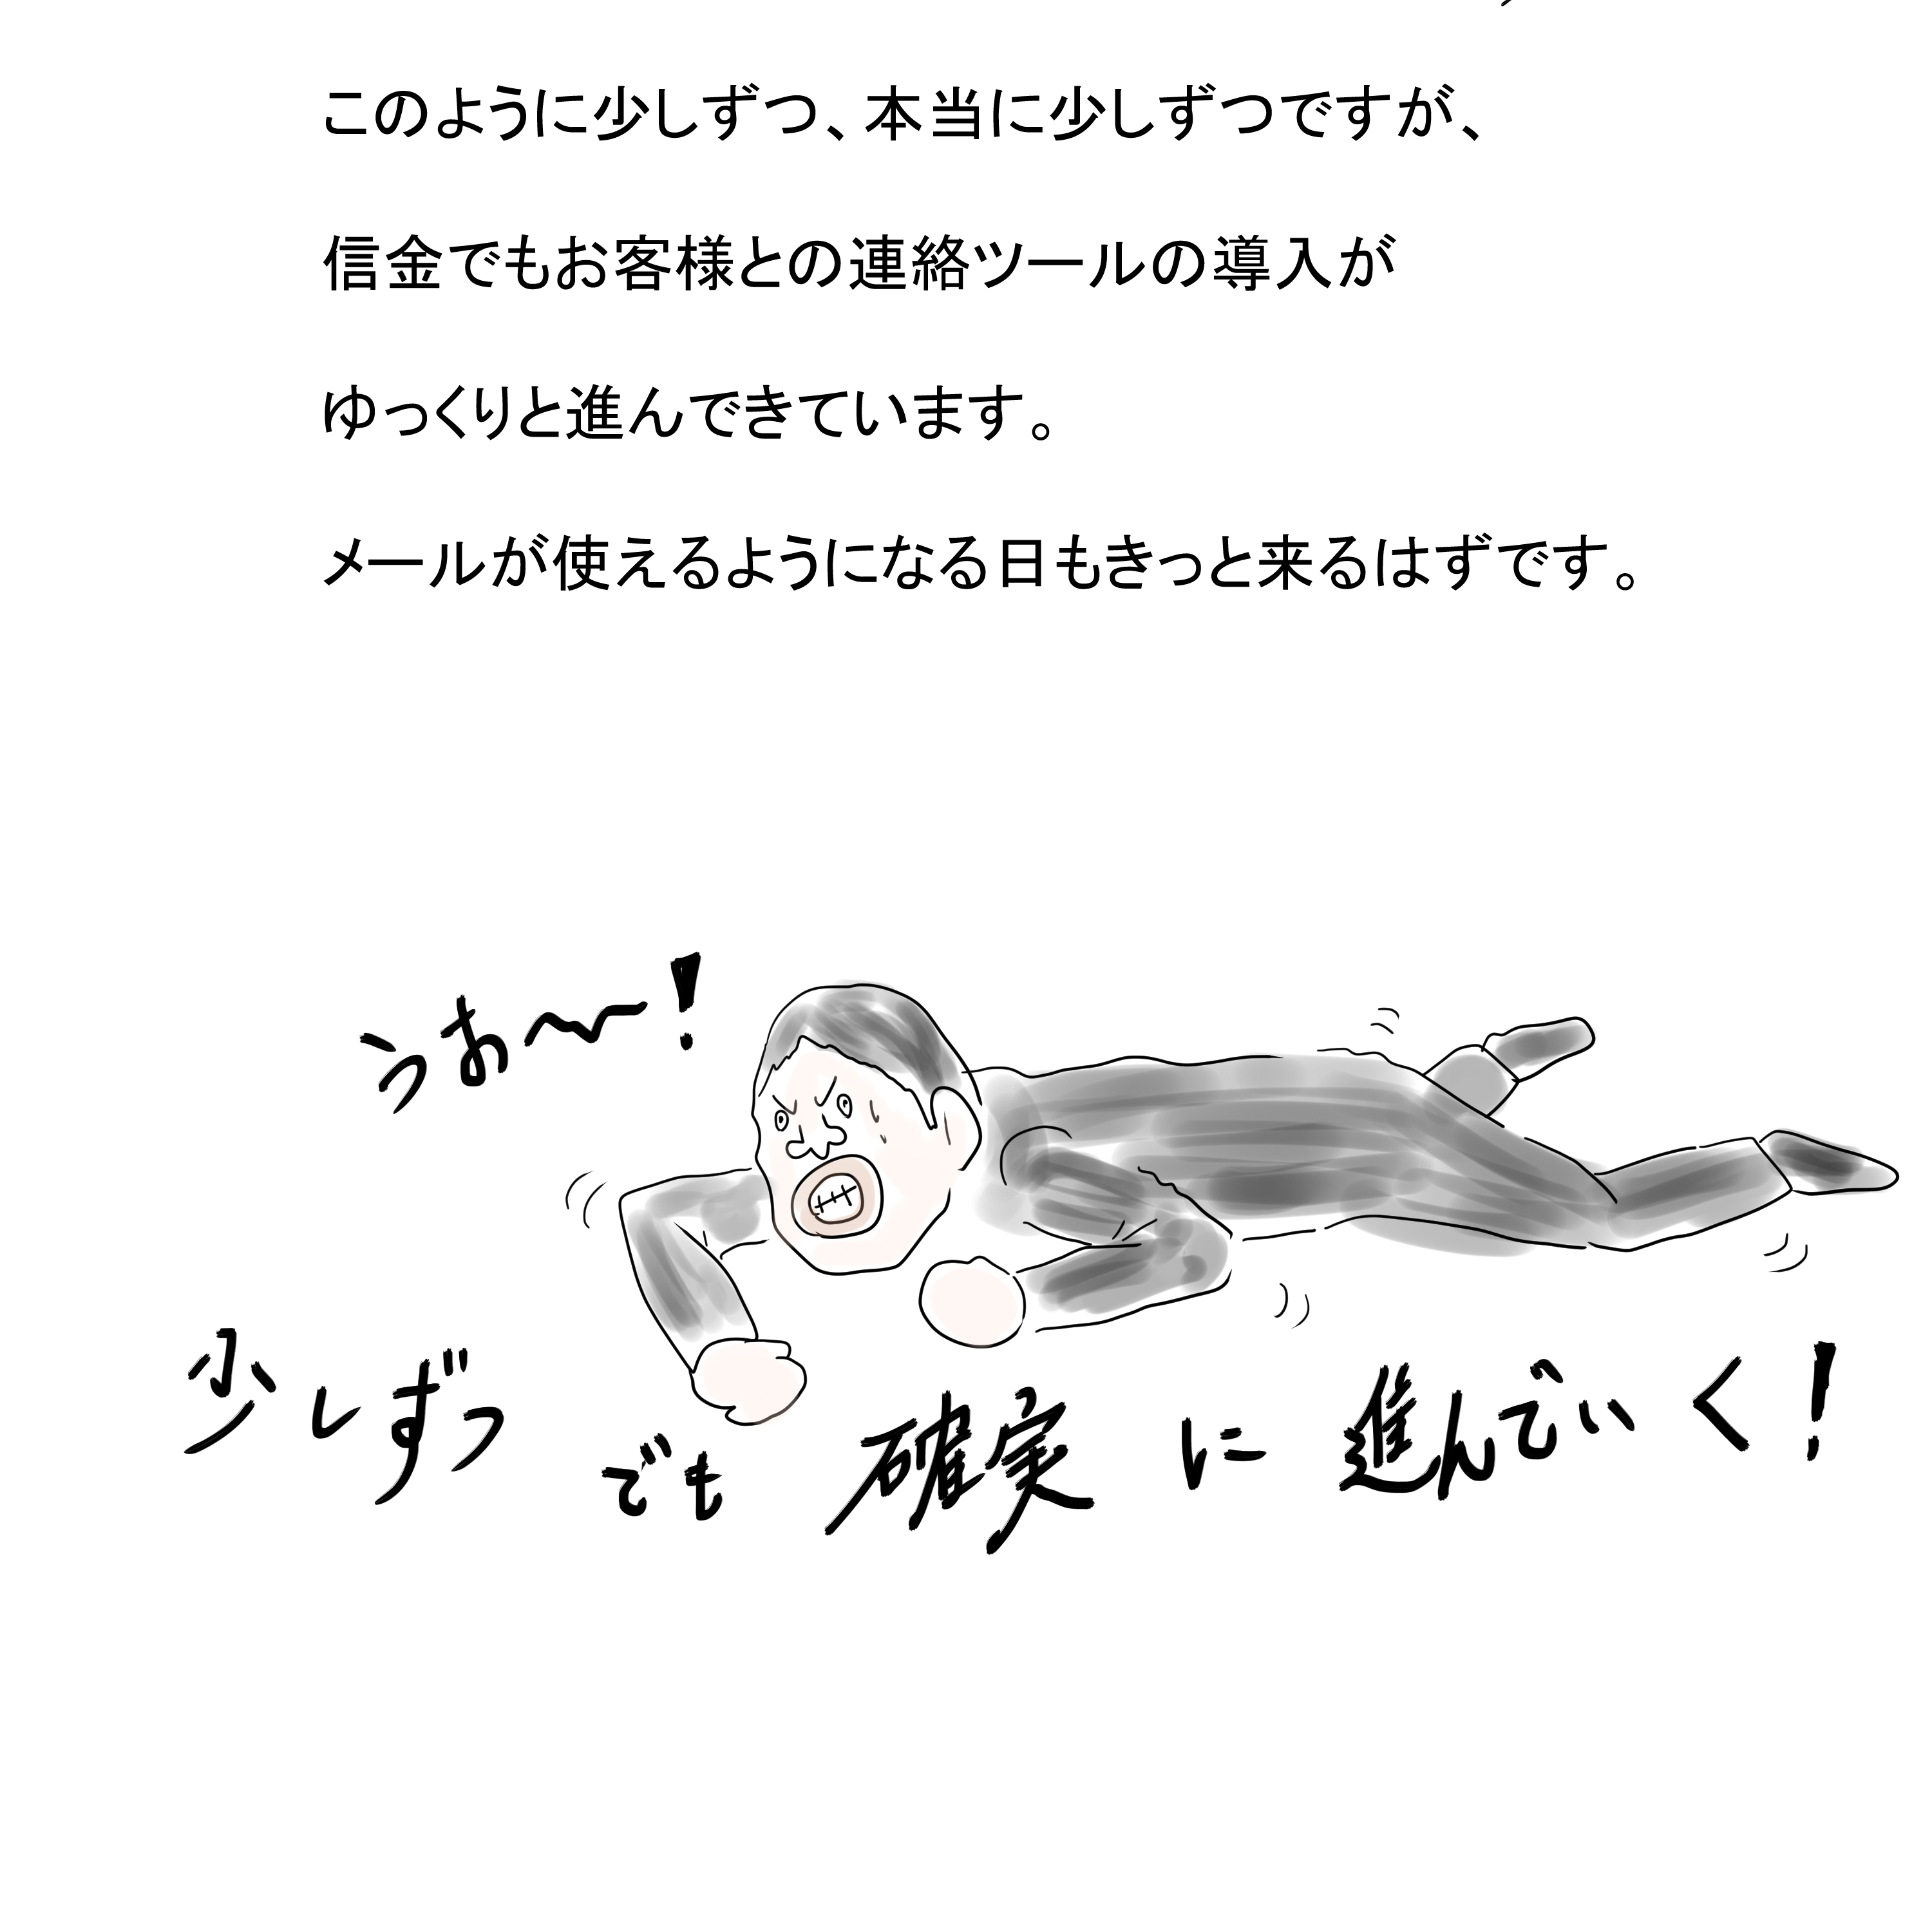 このように少しずつ、本当に少しずつですが、
信金でもお客様との連絡ツールの導入が
ゆっくりと進んできています。
メールが使えるようになる日もきっと来るはずです。
うお〜!
少しずつでも確実に進んでいく!